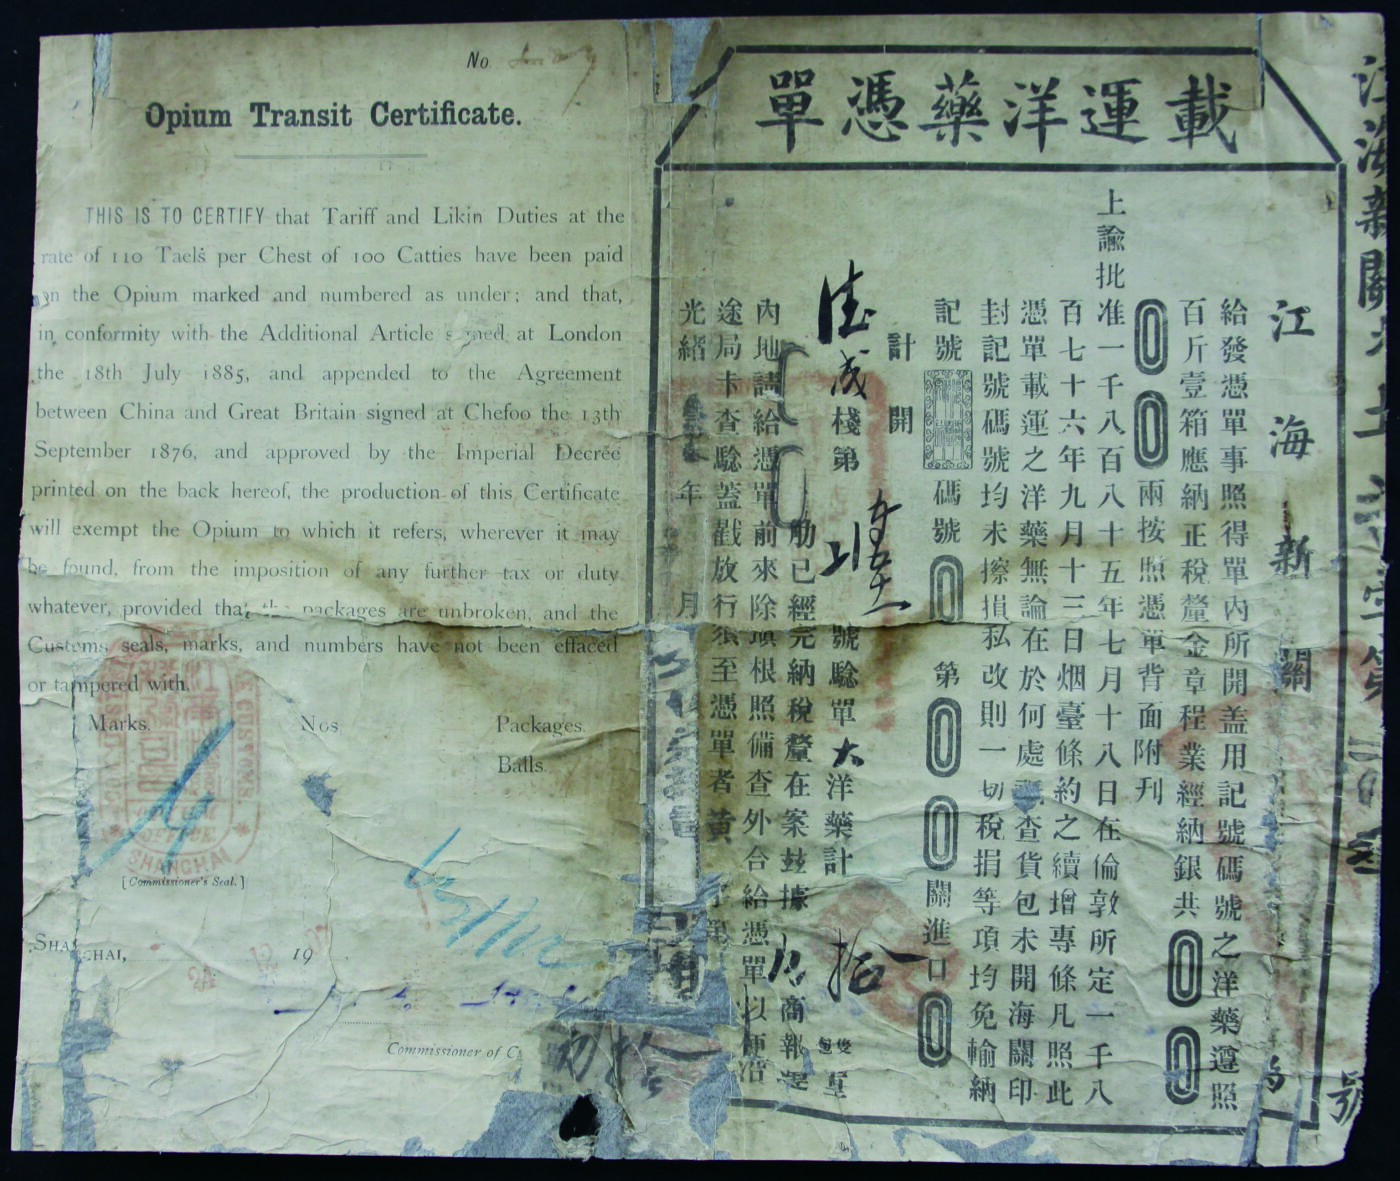 No
Opium Transit Certificate.
THIS IS TO CERTIFY that Tariff and Likin Duties at the
rate of 110 Taels per Chest of 100 Catties have been paid
on the Opium marked and numbered as under; and that,
in conformity with the Additional Article signed at London
the 18th July 1885, and appended to the Agreement
between China and Great Britain signed at Chefoo the 13th
September 1876, and approved by the Imperial Decree
printed on the back hereof, the production of this Certificate
will exempt the Opium to which it refers, wherever it may
be found, from the imposition of any further tax or duty
whatever, provided that the packages are unbroken, and the
Customs seals, marks, and numbers have not been effaced
or tampered with.
Marks. Nos Packages.
Balls.
CUSTOMS
SHANGHAI
[Commissioner's Seal.]
SHANGHAI, 19
24 12
Commissioner of C
單憑藥洋運載
江海新關
號
江海新關為
給發憑單事照得單內所開盖用記號碼號之洋藥遵照
百斤壹箱應納正稅釐金章程業經納銀共
兩按照憑單背面附刊
上諭批准一千八百八十五年七月十八日在倫敦所定一千八
百七十六年九月十三日烟臺條約之續增專條凡照此
憑單載運之洋藥無論在於何處查貨包未開海關印
封記號碼號均未擦損私改則一切稅捐等項均免輸納
記號 碼號 第 關進口
計開
成棧第 號驗單大洋藥計拾
觔已經完納稅釐在案玆據 商報運
內地請給憑單前來除填根照備查外合給憑單以便沿
途局卡查驗蓋戳放行須至憑單者
光緒 年 月
初拾